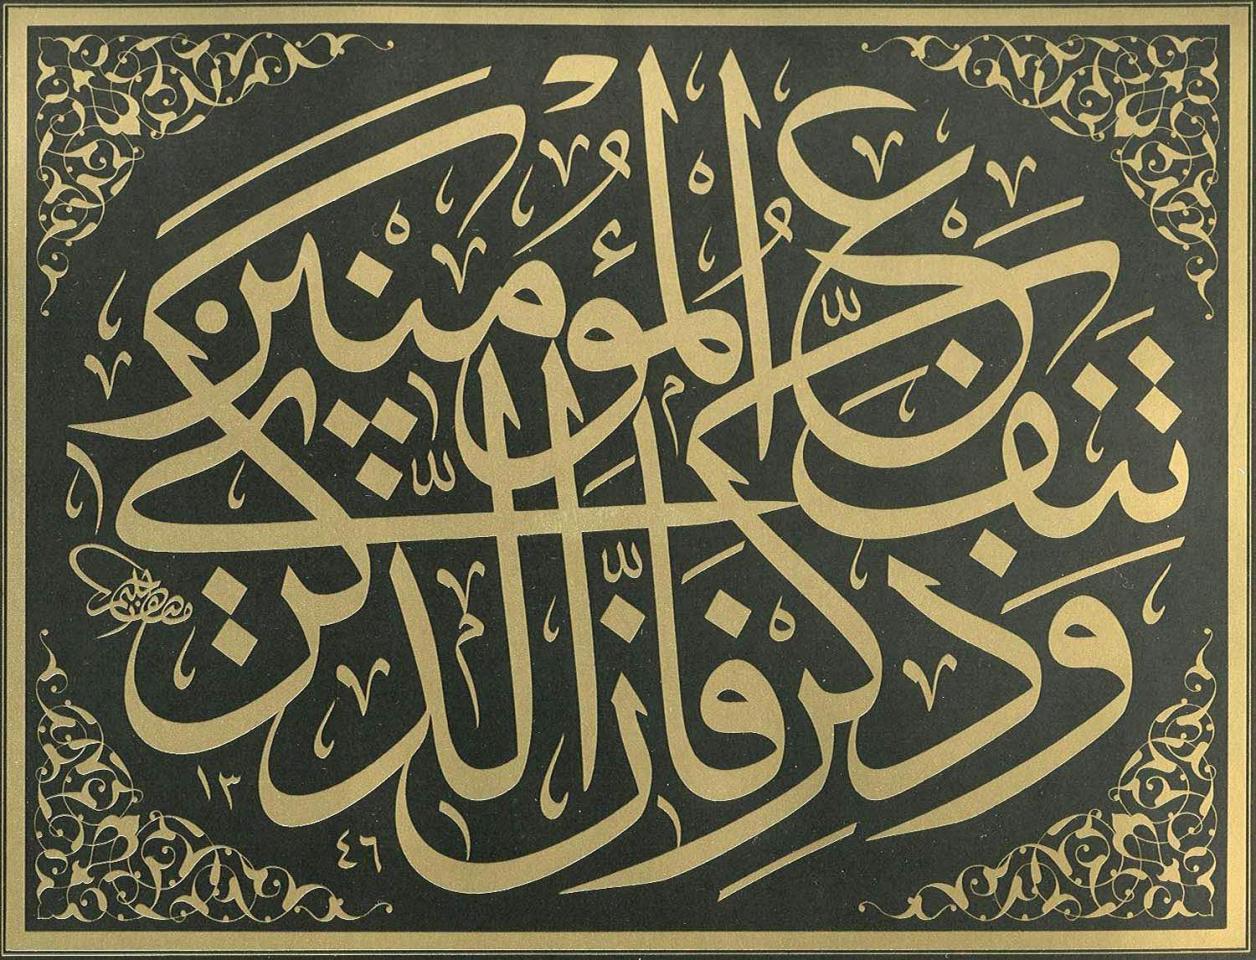 وَذَكِّرْ فَإِنَّ الذِّكْرَى
تَنْفَعُ الْمُؤْمِنِينَ
١٣٤٦